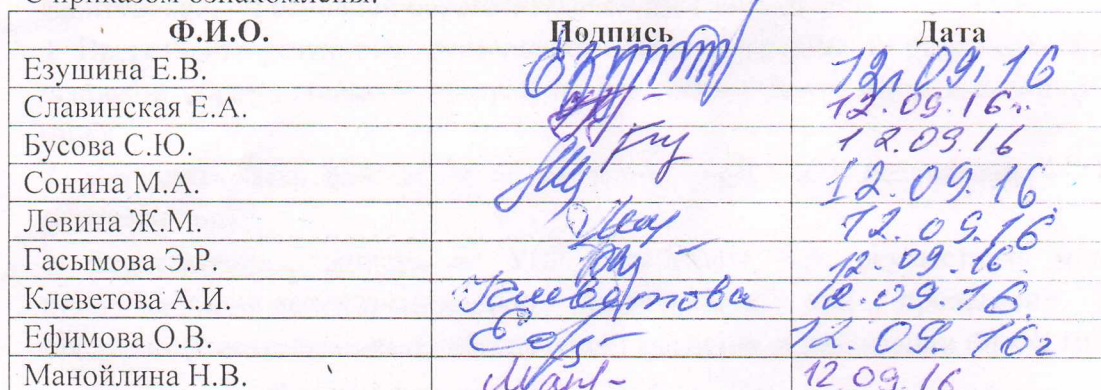 С приказом ознакомлены:
Ф.И.О. Подпись Дата
Езушина Е.В. 12.09.16
Славинская Е.А. 12.09.16г.
Бусова С.Ю. 12.09.16
Сонина М.А. 12.09.16.
Левина Ж.М. 12.09.16
Гасымова Э.Р. 12.09.16.
Клеветова А.И. Клеветова 12.09.16.
Ефимова О.В. 12.09.16г
Манойлина Н.В. 12.09.16